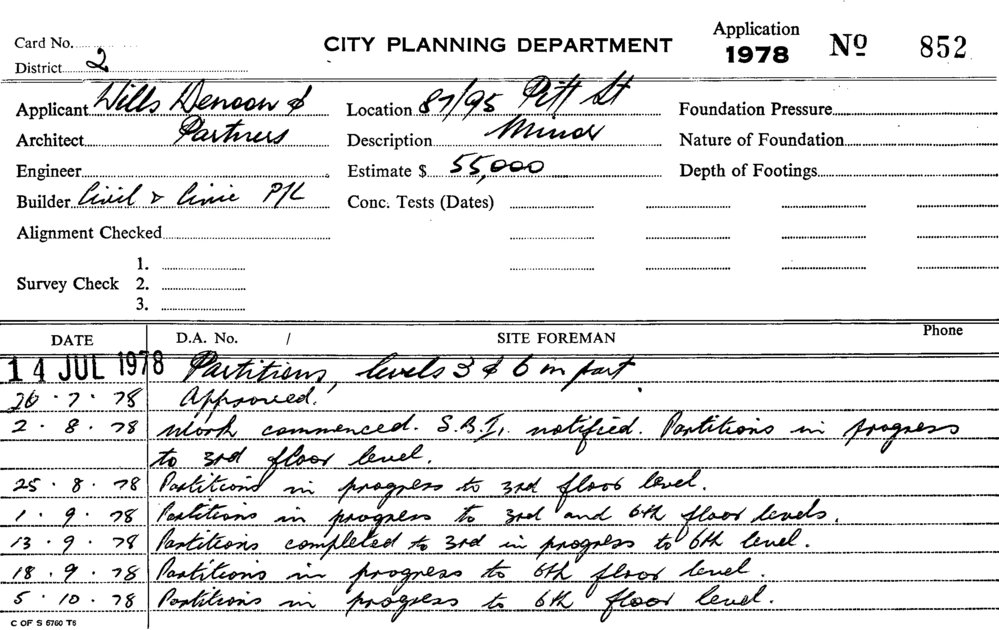 Card No.
CITY PLANNING DEPARTMENT
Application 1978 No 852
District 2
Applicant Wills Denoon &
Location 87/95 Pitt St
Foundation Pressure
Architect Partners
Description Minor
Nature of Foundation
Engineer
Estimate $ 55,000
Depth of Footings
Builder Civil & Civic P/L
Conc. Tests (Dates)
Alignment Checked
Survey Check 1.
2.
3.
DATE D.A. No. / SITE FOREMAN Phone
14 JUL 1978 Partitions, levels 3 & 6 in part.
26.7.78 Approved.
2.8.78 Work commenced. S.B.I. notified. Partitions in progress
to 3rd floor level.
25.8.78 Partitions in progress to 3rd floor level.
1.9.78 Partitions in progress to 3rd and 6th floor levels.
13.9.78 Partitions completed to 3rd in progress to 6th level.
18.9.78 Partitions in progress to 6th floor level.
5.10.78 Partitions in progress to 6th floor level.
C OF S 6760 T6